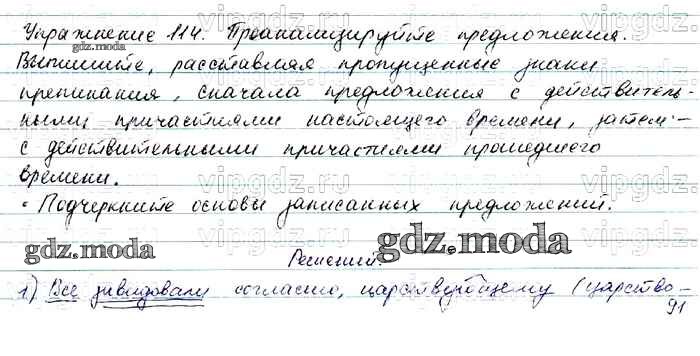 Упражнение 114. Проанализируйте предложения.
gdz.moda
Выпишите, расставляя пропущенные знаки
препинания, сначала предложения с действитель-
ными причастиями настоящего времени, затем -
с действительными причастиями прошедшего
времени.
• Подчеркните основы записанных предложений.
gdz.moda gdz.moda
Решений.
1) Все завидовали согласию, царствующему (царство-
91
vipgdz.ru